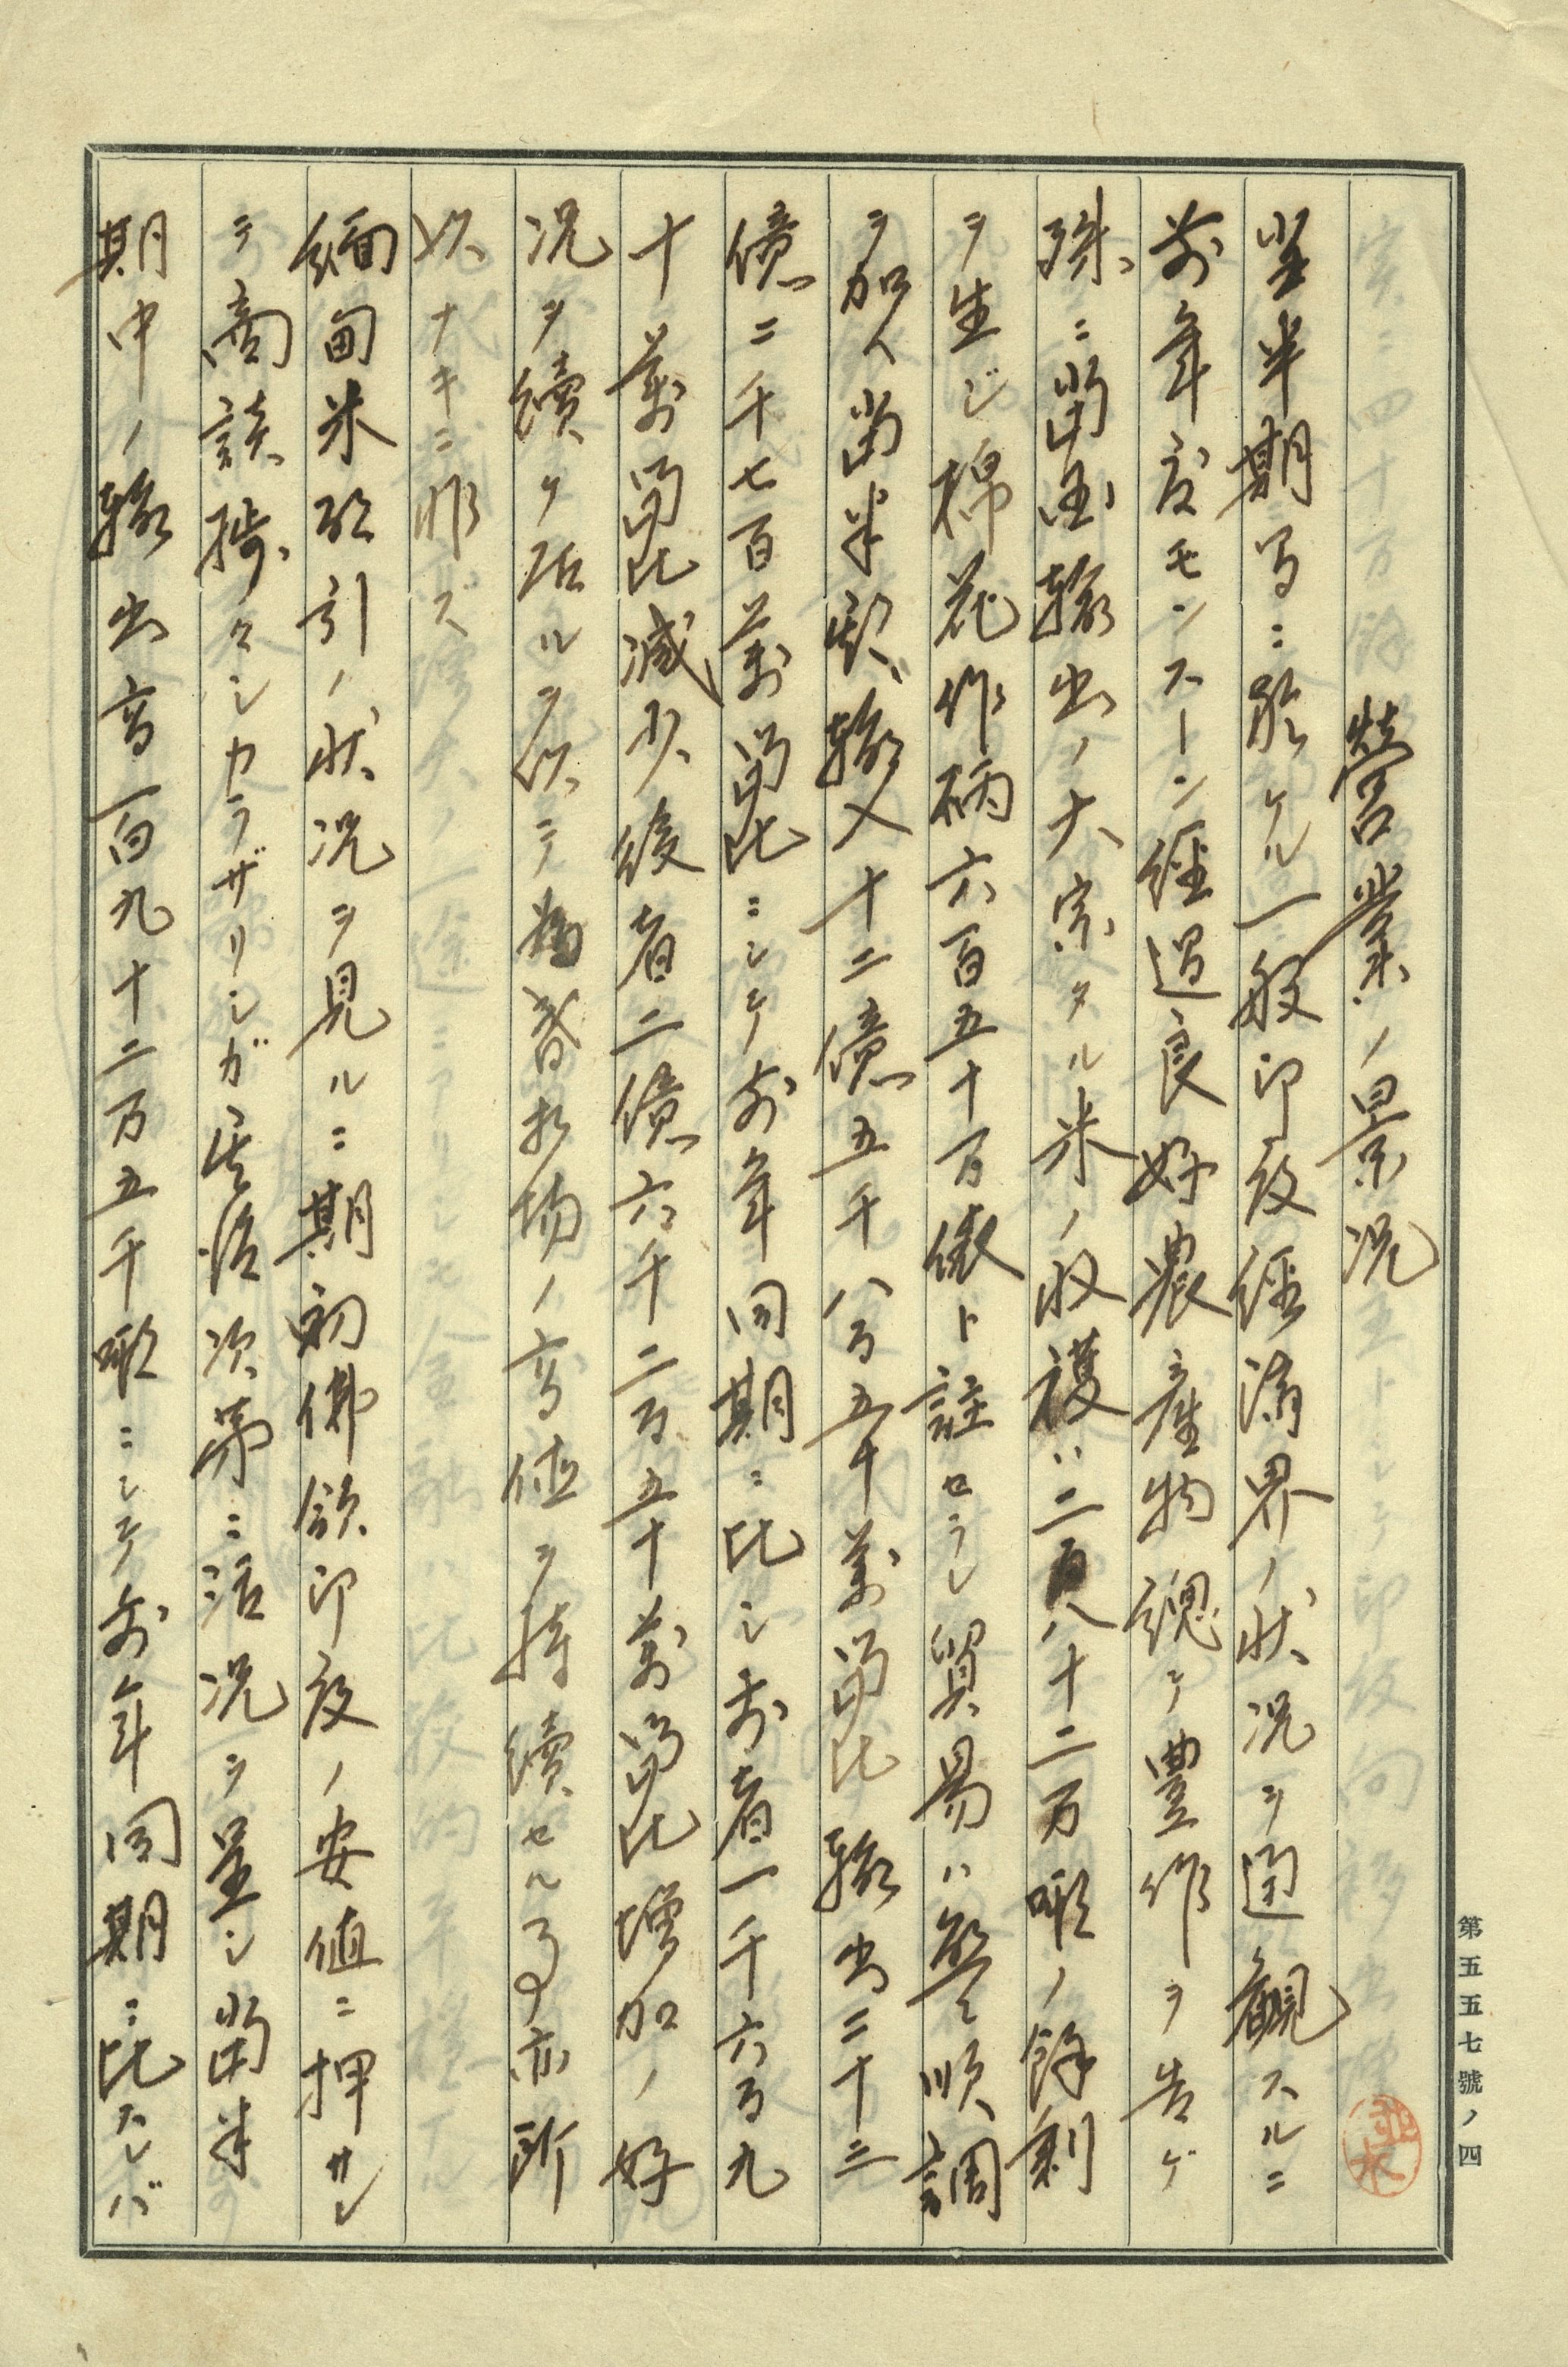 營業ノ景況
當半期間ニ於ケル一般印度經濟界ノ狀況ヲ通觀スルニ
前年度モンスーン經過良好農產物總テ豐作ヲ告ゲ
殊ニ當國輸出ノ大宗タル米ノ收穫ハ二百八十二万噸ノ餘剩
ヲ生ジ棉花作柄六百五十万俵ト註セラレ貿易ハ順調
ヲ加ヘ當半期輸入十二億五千八百五十萬留比輸出二十三
億二千七百萬留比ニシテ前年同期ニ比シ前者一千六百九
十萬留比減少後者二億六千二百五十萬留比增加ノ好
況ヲ續ケ居ルヲ以テ爲替相場ノ高値ヲ持續セル事亦所
以ナキニ非ズ
緬甸米取引ノ狀況ヲ見ルニ期初佛領印度ノ安値ニ押サレ
テ商談捗々シカラザリシガ其後次第ニ活況ヲ呈シ當半
期中ノ輸出高百九十二万五千噸ニシテ前年同期ニ比スレバ
第五五七號ノ四